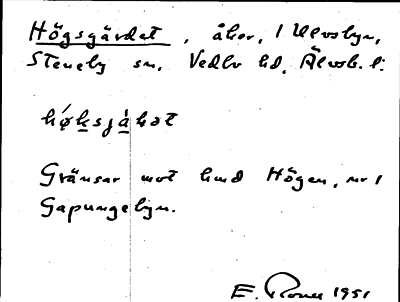 Högsgärdet, åker, 1 Ulvsbyn,
Steneby sn, Vedbo hd, Älvsb. l.
høksjálat
Gränsar mot lmd Högen, nr 1
Gapungebyn.
E. 1951